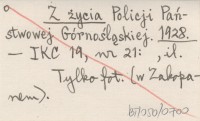 Z życia Policji Pań-
stwowej Górnośląskiej. 1928.
— IKC 19, nr 21: , il.
Tylko fot. (w Zakopa-
nem).